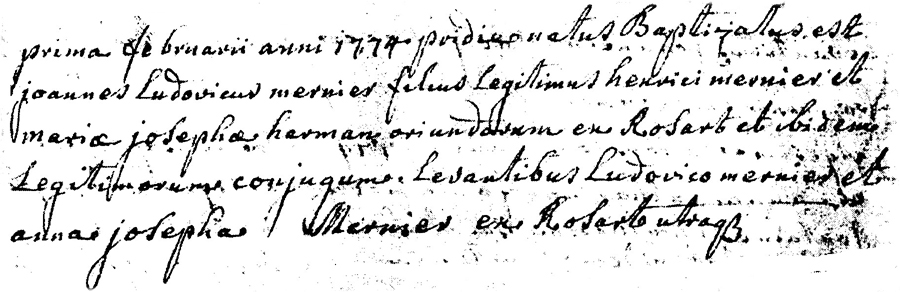 prima februarii anni 1774 pridie natus Baptizatus est
joannes Ludovicus mernier filius Legitimus henrici mernier et
mariæ josephæ harman oriundorum ex Rosart et ibidem
Legitimorum conjugum. Levantibus Ludovico mernier et
anna josepha Mernier ex Rosart utraq